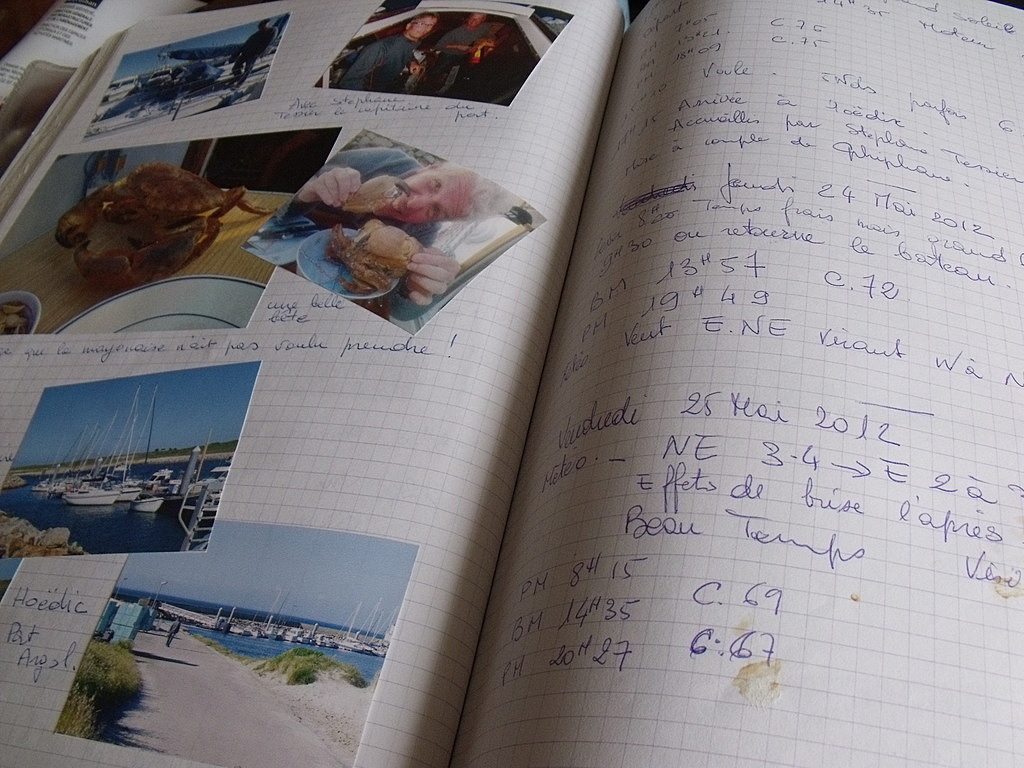 Avec Stéphane
Tessier le capitaine du
port.
une belle
bête
que la mayonaise n'ait pas voulu prendre !
Hoëdic
Port
Argol.
soleil
14H35 Moteur
C.76
C.75
Voile. parfois 6
Arrivée à Hoëdic.
Accueillis par Stéphane Tessier
mise à couple de
Jeudi 24 Mai 2012
Temps frais mais grand
9H30 on retourne le bateau.
BM 13H57 C.72
PM 19H49
Vent E.NE Virant W à N
Vendredi 25 Mai 2012
Météo. - NE 3-4 → E 2 à 3
Effets de brise l'après
Beau Temps
PM 8H15
BM 14H35 C.69
PM 20H27 C:67